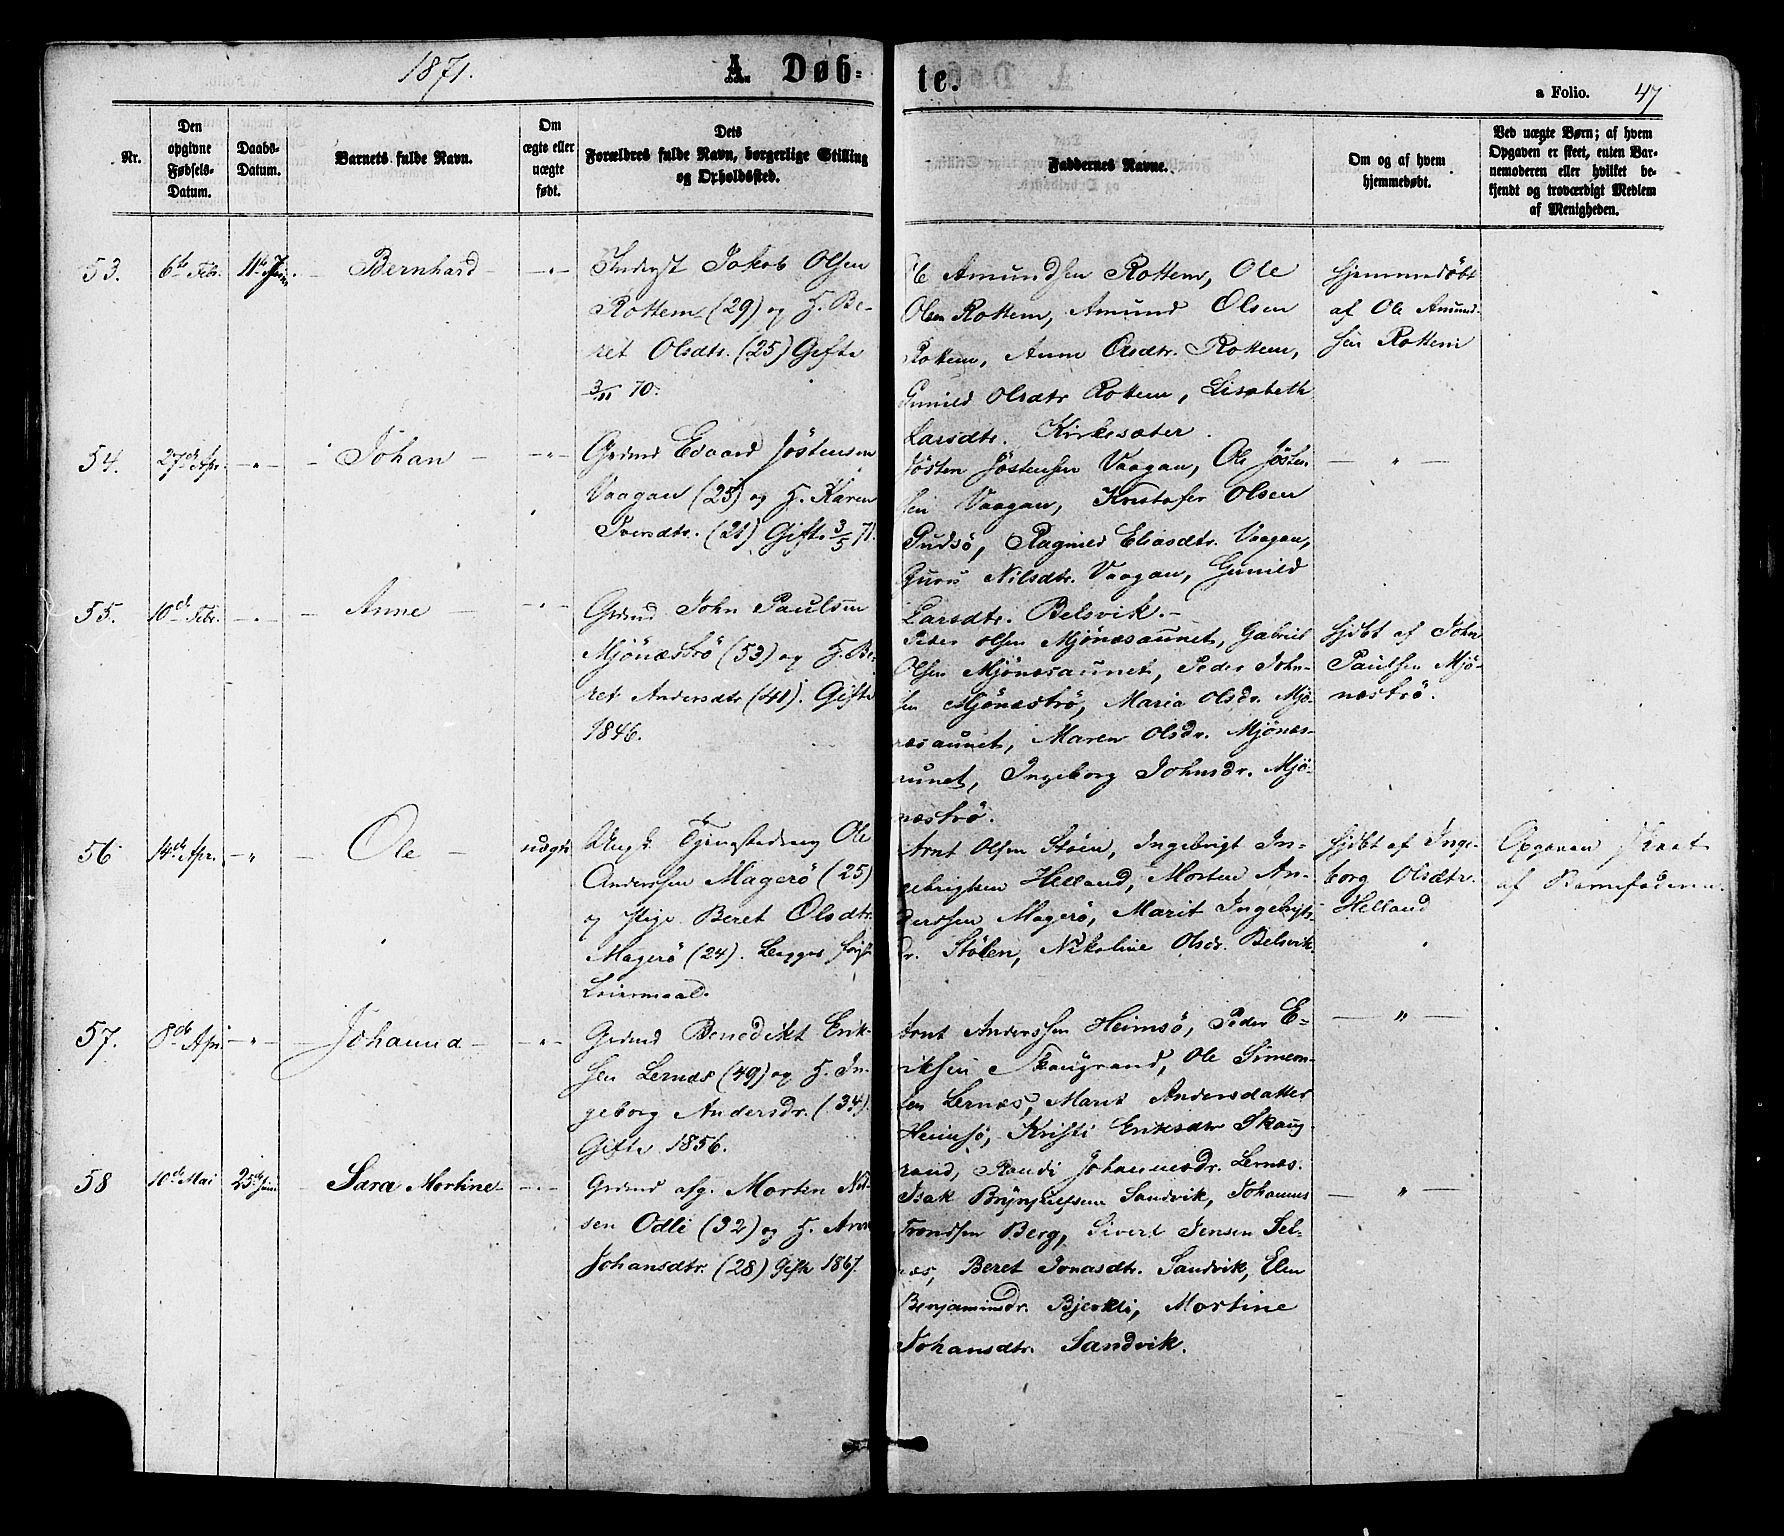 1871.
A. Døb-
te.
a Folio. 47
Nr.
Den opgivne Fødsels-Datum.
Daabs-Datum.
Barnets fulde Navn.
Om ægte eller uægte født.
Dets Forældres fulde Navn, borgerlige Stilling og Opholdssted.
Faddernes Navne.
Om og af hvem hjemmedøbt.
Ved uægte Børn; af hvem Opgaven er skeet, enten Barnemoderen eller hvilket bekjendt og troværdigt Medlem af Menigheden.
53. 6te Febr. 11te Juni. - Bernhard - - " -
Inderst Jakob Olsen
Rottem (29) og H. Be-
ret Olsdtr. (25) Gifte
3/11 70.
Ole Amundsen Rottem, Ole
Olsen Rottem, Amund Olsen
Rottem, Anne Olsdtr. Rottem,
Gunild Olsdtr Rottem, Lisabeth
Larsdtr. Kirkesæter.
Hjemmedøbt
af Ole Amund-
sen Rottem
54. 27de Apr. - " - - Johan - - " -
Grdmd Edvard Jøstensen
Vaagan (25) og H. Karen
Iversdtr. (21) Gifte 3/5 71.
Jøsten Jøstensen Vaagan, Ole Jøsten-
sen Vaagan, Kristofer Olsen
Pudsø, Ragnild Eliasdtr. Vaagan,
Guru Nilsdtr. Vaagan, Gunild
Larsdtr. Belsvik. -
- " -
55. 10de Febr. - " - - Anne - - " -
Grdmd John Paulsen
Mjønæstrø (53) og H. Be-
ret Andersdtr (41). Gifte
1846.
Peder Olsen Mjønæsaunet, Gabriel
Olsen Mjønæsaunet, Peder John-
sen Mjønæstrø, Maria Olsdr. Mjø-
næsaunet, Maren Olsdr. Mjønæs-
aunet, Ingeborg Johnsdr. Mjø-
næstrø.
Hjdbt af John
Paulsen Mjø-
næstrø.
56 14de Apr. - " - - Ole - uægte
Ungk. Tjenestedreng Ole
Anderssen Magerø (25)
og Pige Beret Olsdtr.
Magerø (24). Begges første
Leiermaal.
Arnt Olsen Støen, Ingebrigt In-
gebrigtsen Helland, Morten An-
derssen Magerø, Marit Ingebrigts-
dr. Stølen, Nikoline Olsdr. Belsvik
Hjdbt af Inge-
borg Olsdtr.
Helland
Opgaven skeet
af Barnefaderen.
57. 8de Apr. - " - - Johanna - - " -
Grdmd Benedikt Erik-
sen Lernæs (49) og H. In-
geborg Andersdr. (34).
Gifte 1856.
Arnt Anderssen Heimsø, Peder E-
riksen Skaugrand, Ole Simon-
sen Lernæs, Marit Andersdatter
Heimsø, Kristi Eriksdtr Skaug-
rand, Randi Johannesdr. Lernæs.
- " -
58 10de Mai 25de Juni - Sara Martine - - " -
Grdmd afg. Morten Nil-
sen Odli (32) og H. Ane
Johansdtr. (28) Gifte 1867.
Isak Brynjulfsen Sandvik, Johannes
Trondsen Berg, Sivert Jensen Sel-
næs, Beret Jonasdtr. Sandvik, Elen
Benjaminsdr. Bjerkli, Martine
Johansdtr. Sandvik.
- " -